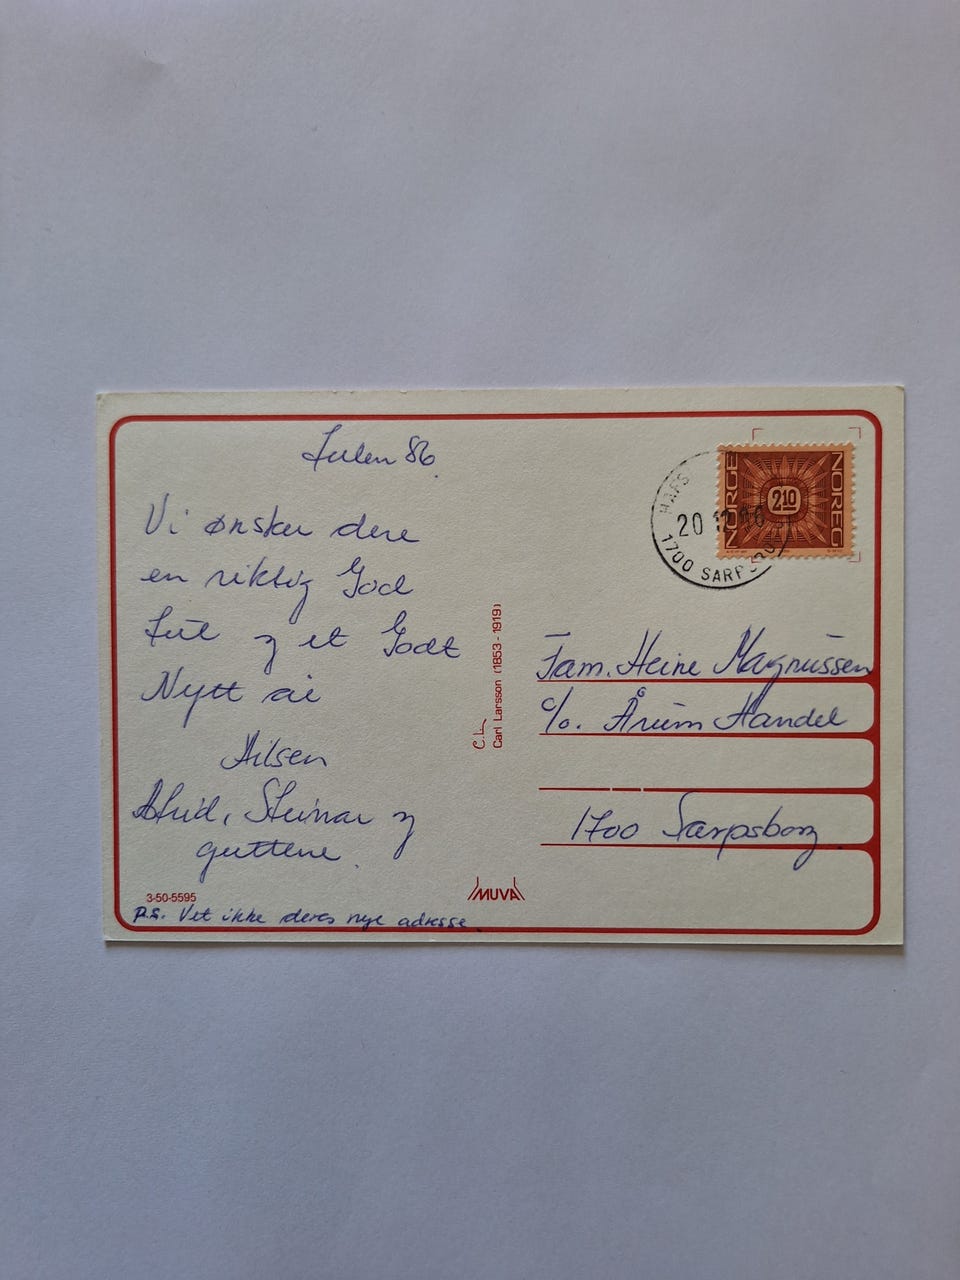 Julen 86.
Vi ønsker dere
en riktig God
Jul og et Godt
Nytt år
Hilsen
Steinar og
guttene.
P.S. Vet ikke deres nye adresse.
3-50-5595
C.L.
Carl Larsson (1853-1919)
MUVA
NORGE
2.10
NOREG
HAFS
20 12 86
1700 SARPSBORG
Fam. Heine Magnussen
c/o. Årum Handel
1700 Sarpsborg.